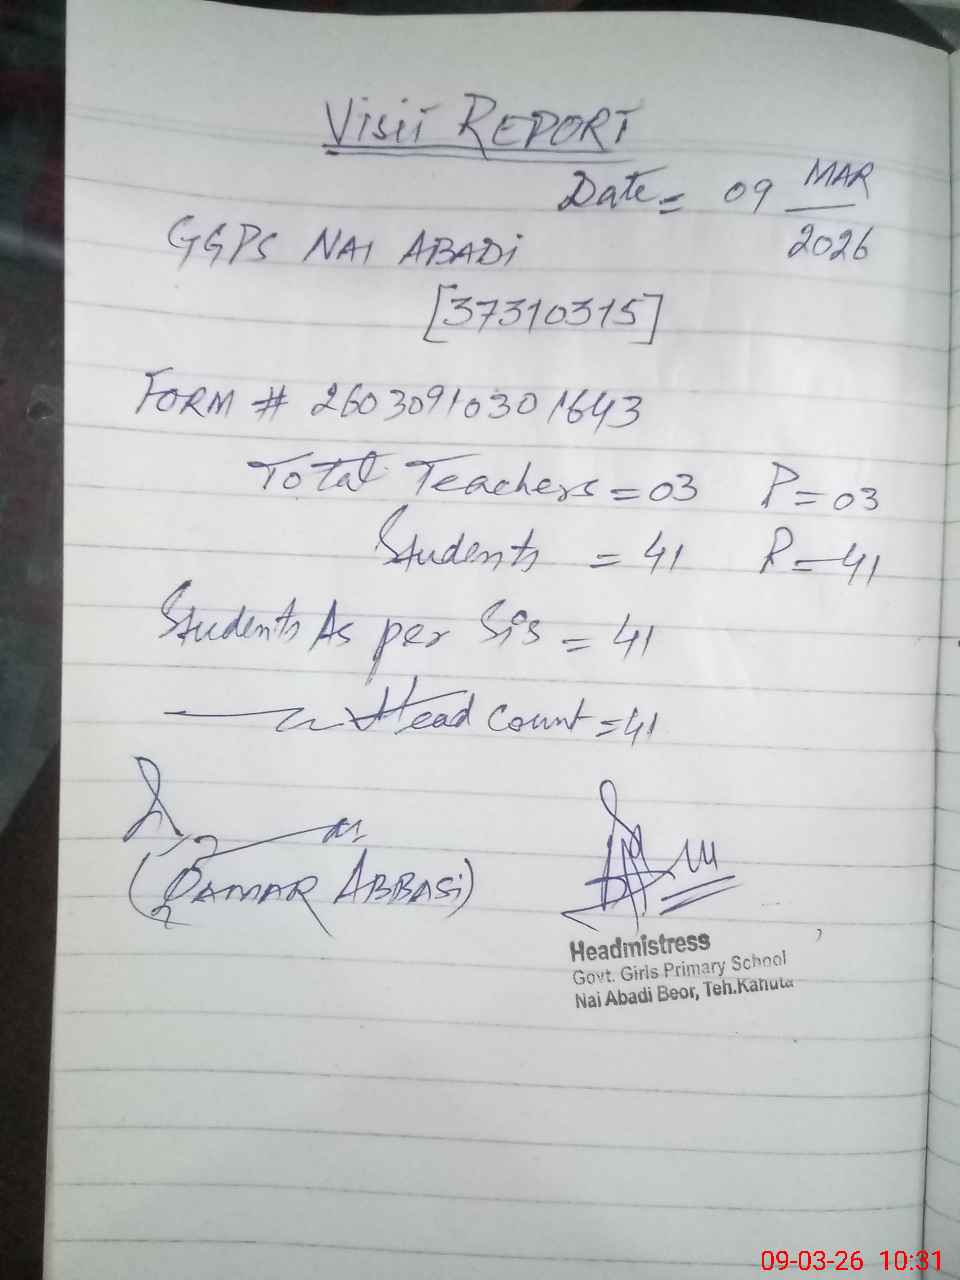 Visit REPORT
Date = 09 MAR
2026
GGPS NAI ABADI
[37310315]
FORM # 26030910301643
Total Teachers = 03 P = 03
Students = 41 P = 41
Students As per Sis = 41
Head count = 41
(QAMAR ABBASI)
Headmistress
Govt. Girls Primary School
Nai Abadi Beor, Teh.Kahuta
09-03-26 10:31